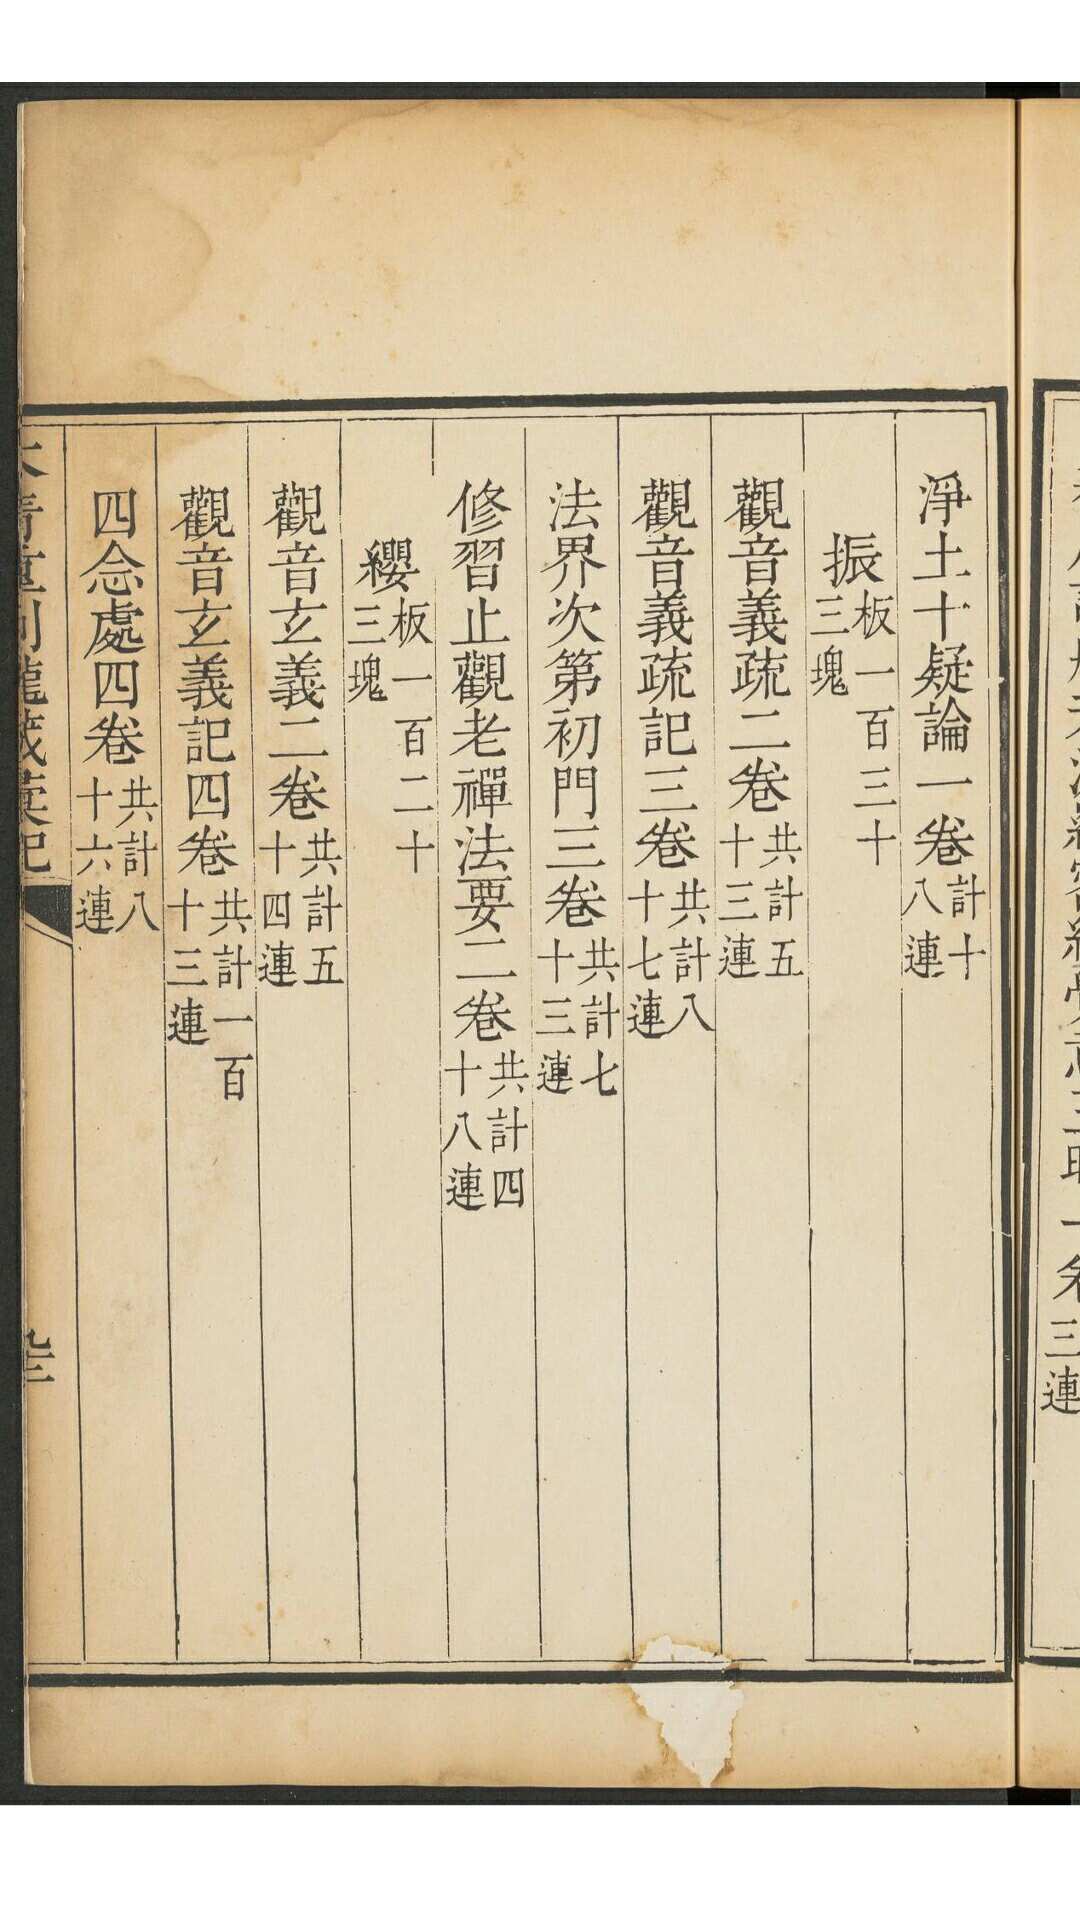 淨土十疑論一卷計十八連
振板一百三十三塊
觀音義疏二卷共計五十三連
觀音義疏記三卷共計八十七連
法界次第初門三卷共計七十三連
修習止觀老禪法要二卷共計四十八連
纓板一百二十三塊
觀音玄義二卷共計五十四連
觀音玄義記四卷共計一百十三連
四念處四卷共計八十六連